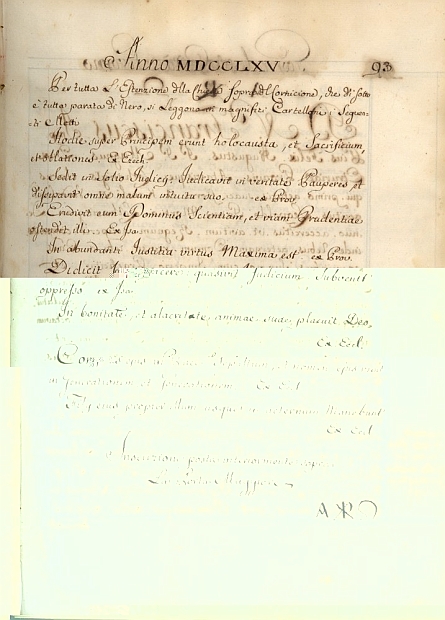 Anno MDCCLXV
93
Per tutta l'Estenzione della Chiesa sopra del Cornicione, che di sotto
è tutta parata de Nero, si Leggono in magnifici Cartelloni i Seguen-
ti Motti
Hodie super Principem erunt holocausta, et Sacrificium,
et ex Ezech
Sedit in Solio Iudicij Iudicavit in veritate Pauperes et
dissipavit omne malum intuitu suo. ex Prov
Erudivit eum Dominus Scientiam, et viam Prudentiae
ostendit illi. Ex Isa
In abundanti Iustitia virtus Maxima est ex Prov
Didicit quasivit Iudicium, Subvenit
oppresso ex Isa
In bonitate, et alacritate animae suae placuit Deo.
Ex Eccl
Corpus in Pace Sepultum, et nomen
in generationem et generationem Ex Eccl
Filij eius propter illum usque in aeternum Manebunt
Ex Eccl
Inscrizione posta interiormente sopra
La Porta Maggiore